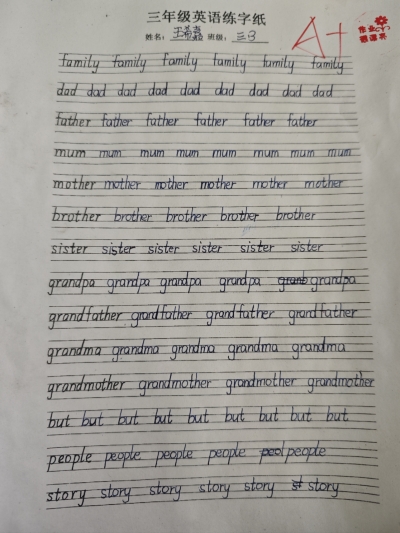 三年级英语练字纸
姓名: 班级: 三3
A+
family family family family family family
dad dad dad dad dad dad dad dad
father father father father father father
mum mum mum mum mum mum mum
mother mother mother mother mother mother
brother brother brother brother brother
sister sister sister sister sister sister
grandpa grandpa grandpa grandpa grandpa
grandfather grandfather grandfather grandfather
grandma grandma grandma grandma grandma
grandmother grandmother grandmother grandmother
but but but but but but but but
people people people people people
story story story story story st story